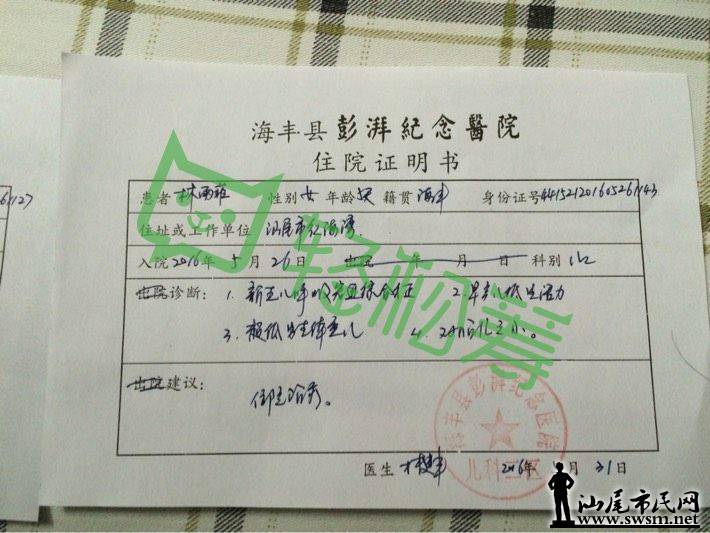 海丰县彭湃紀念醫院
住院证明书
患者 林雨菲 性别 女 年龄 籍贯 海丰 身份证号
住址或工作单位 汕尾市红海湾
入院2016年5月26日 出院 年 月 日 科别 儿二
出院诊断: 1. 新生儿呼吸窘迫综合征 2. 早产儿低生活力
3. 极低出生体重儿 4.
出院建议: 住院治疗。
医生 2016年 月31日
海丰县彭湃纪念医院
儿科二区
轻松筹
汕尾市民网
www.swsm.net